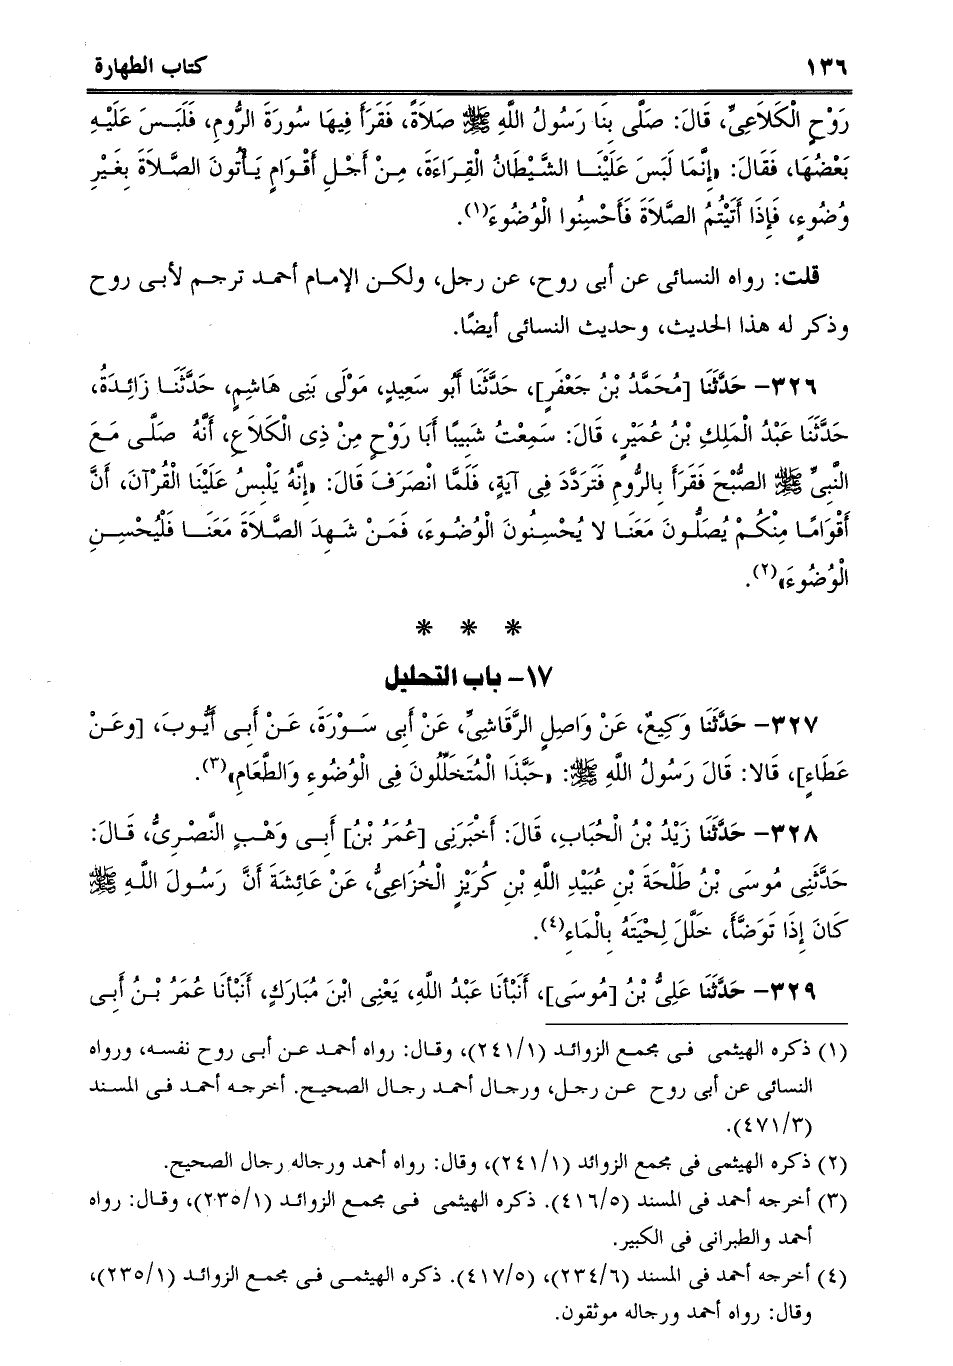 ١٣٦ كتاب الطهارة
رَوْحٍ الْكَلاَعِىِّ، قَالَ: صَلَّى بِنَا رَسُولُ اللَّهِ ﷺ صَلاَةً، فَقَرَأَ فِيهَا سُورَةَ الرُّومِ، فَلَبَسَ عَلَيْهِ
بَعْضُهَا، فَقَالَ: «إِنَّمَا لَبَسَ عَلَيْنَا الشَّيْطَانُ الْقِرَاءَةَ، مِنْ أَجْلِ أَقْوَامٍ يَأْتُونَ الصَّلاَةَ بِغَيْرِ
وُضُوءٍ، فَإِذَا أَتَيْتُمُ الصَّلاَةَ فَأَحْسِنُوا الْوُضُوءَ»(١).
قلت: رواه النسائى عن أبى روح، عن رجل، ولكن الإمام أحمد ترجم لأبى روح
وذكر له هذا الحديث، وحديث النسائى أيضًا.
٣٢٦- حَدَّثَنَا [مُحَمَّدُ بْنُ جَعْفَرٍ]، حَدَّثَنَا أَبُو سَعِيدٍ، مَوْلَى بَنِى هَاشِمٍ، حَدَّثَنَا زَائِدَةُ،
حَدَّثَنَا عَبْدُ الْمَلِكِ بْنُ عُمَيْرٍ، قَالَ: سَمِعْتُ شَبِيبًا أَبَا رَوْحٍ مِنْ ذِى الْكَلاَعِ، أَنَّهُ صَلَّى مَعَ
النَّبِىِّ ﷺ الصُّبْحَ فَقَرَأَ بِالرُّومِ فَتَرَدَّدَ فِى آيَةٍ، فَلَمَّا انْصَرَفَ قَالَ: «إِنَّهُ يَلْبِسُ عَلَيْنَا الْقُرْآنَ، أَنَّ
أَقْوَامًا مِنْكُمْ يُصَلُّونَ مَعَنَا لا يُحْسِنُونَ الْوُضُوءَ، فَمَنْ شَهِدَ الصَّلاَةَ مَعَنَا فَلْيُحْسِنِ
الْوُضُوءَ»(٢).
* * *
١٧- باب التحليل
٣٢٧- حَدَّثَنَا وَكِيعٌ، عَنْ وَاصِلٍ الرَّقَاشِىِّ، عَنْ أَبِى سَوْرَةَ، عَنْ أَبِى أَيُّوبَ، [وعَنْ
عَطَاءٍ]، قَالا: قَالَ رَسُولُ اللَّهِ ﷺ: «حَبَّذَا الْمُتَخَلِّلُونَ فِى الْوُضُوءِ وَالطَّعَامِ»(٣).
٣٢٨- حَدَّثَنَا زَيْدُ بْنُ الْحُبَابِ، قَالَ: أَخْبَرَنِى [عُمَرُ بْنُ] أَبِى وَهْبٍ النَّصْرِىُّ، قَالَ:
حَدَّثَنِى مُوسَى بْنُ طَلْحَةَ بْنِ عُبَيْدِ اللَّهِ بْنِ كُرَيْزٍ الْخُزَاعِىُّ، عَنْ عَائِشَةَ أَنَّ رَسُولَ اللَّهِ ﷺ
كَانَ إِذَا تَوَضَّأَ، خَلَّلَ لِحْيَتَهُ بِالْمَاءِ(٤).
٣٢٩- حَدَّثَنَا عَلِىُّ بْنُ [مُوسَى]، أَنْبَأَنَا عَبْدُ اللَّهِ، يَعْنِى ابْنَ مُبَارَكٍ، أَنْبَأَنَا عُمَرُ بْنُ أَبِى
(١) ذكره الهيثمى فى مجمع الزوائد (٢٤١/١)، وقال: رواه أحمد عن أبى روح نفسه، ورواه
النسائى عن أبى روح عن رجل، ورجال أحمد رجال الصحيح. أخرجه أحمد فى المسند
(٤٧١/٣).
(٢) ذكره الهيثمى فى مجمع الزوائد (٢٤١/١)، وقال: رواه أحمد ورجاله رجال الصحيح.
(٣) أخرجه أحمد فى المسند (٤١٦/٥). ذكره الهيثمى فى مجمع الزوائد (٢٣٥/١)، وقال: رواه
أحمد والطبرانى فى الكبير.
(٤) أخرجه أحمد فى المسند (٢٣٤/٦)، (٤١٧/٥). ذكره الهيثمى فى مجمع الزوائد (٢٣٥/١)،
وقال: رواه أحمد ورجاله موثقون.